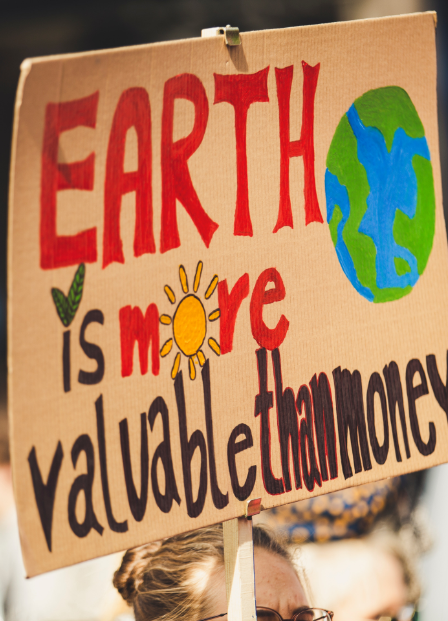 EARTH
is more
valuable than money